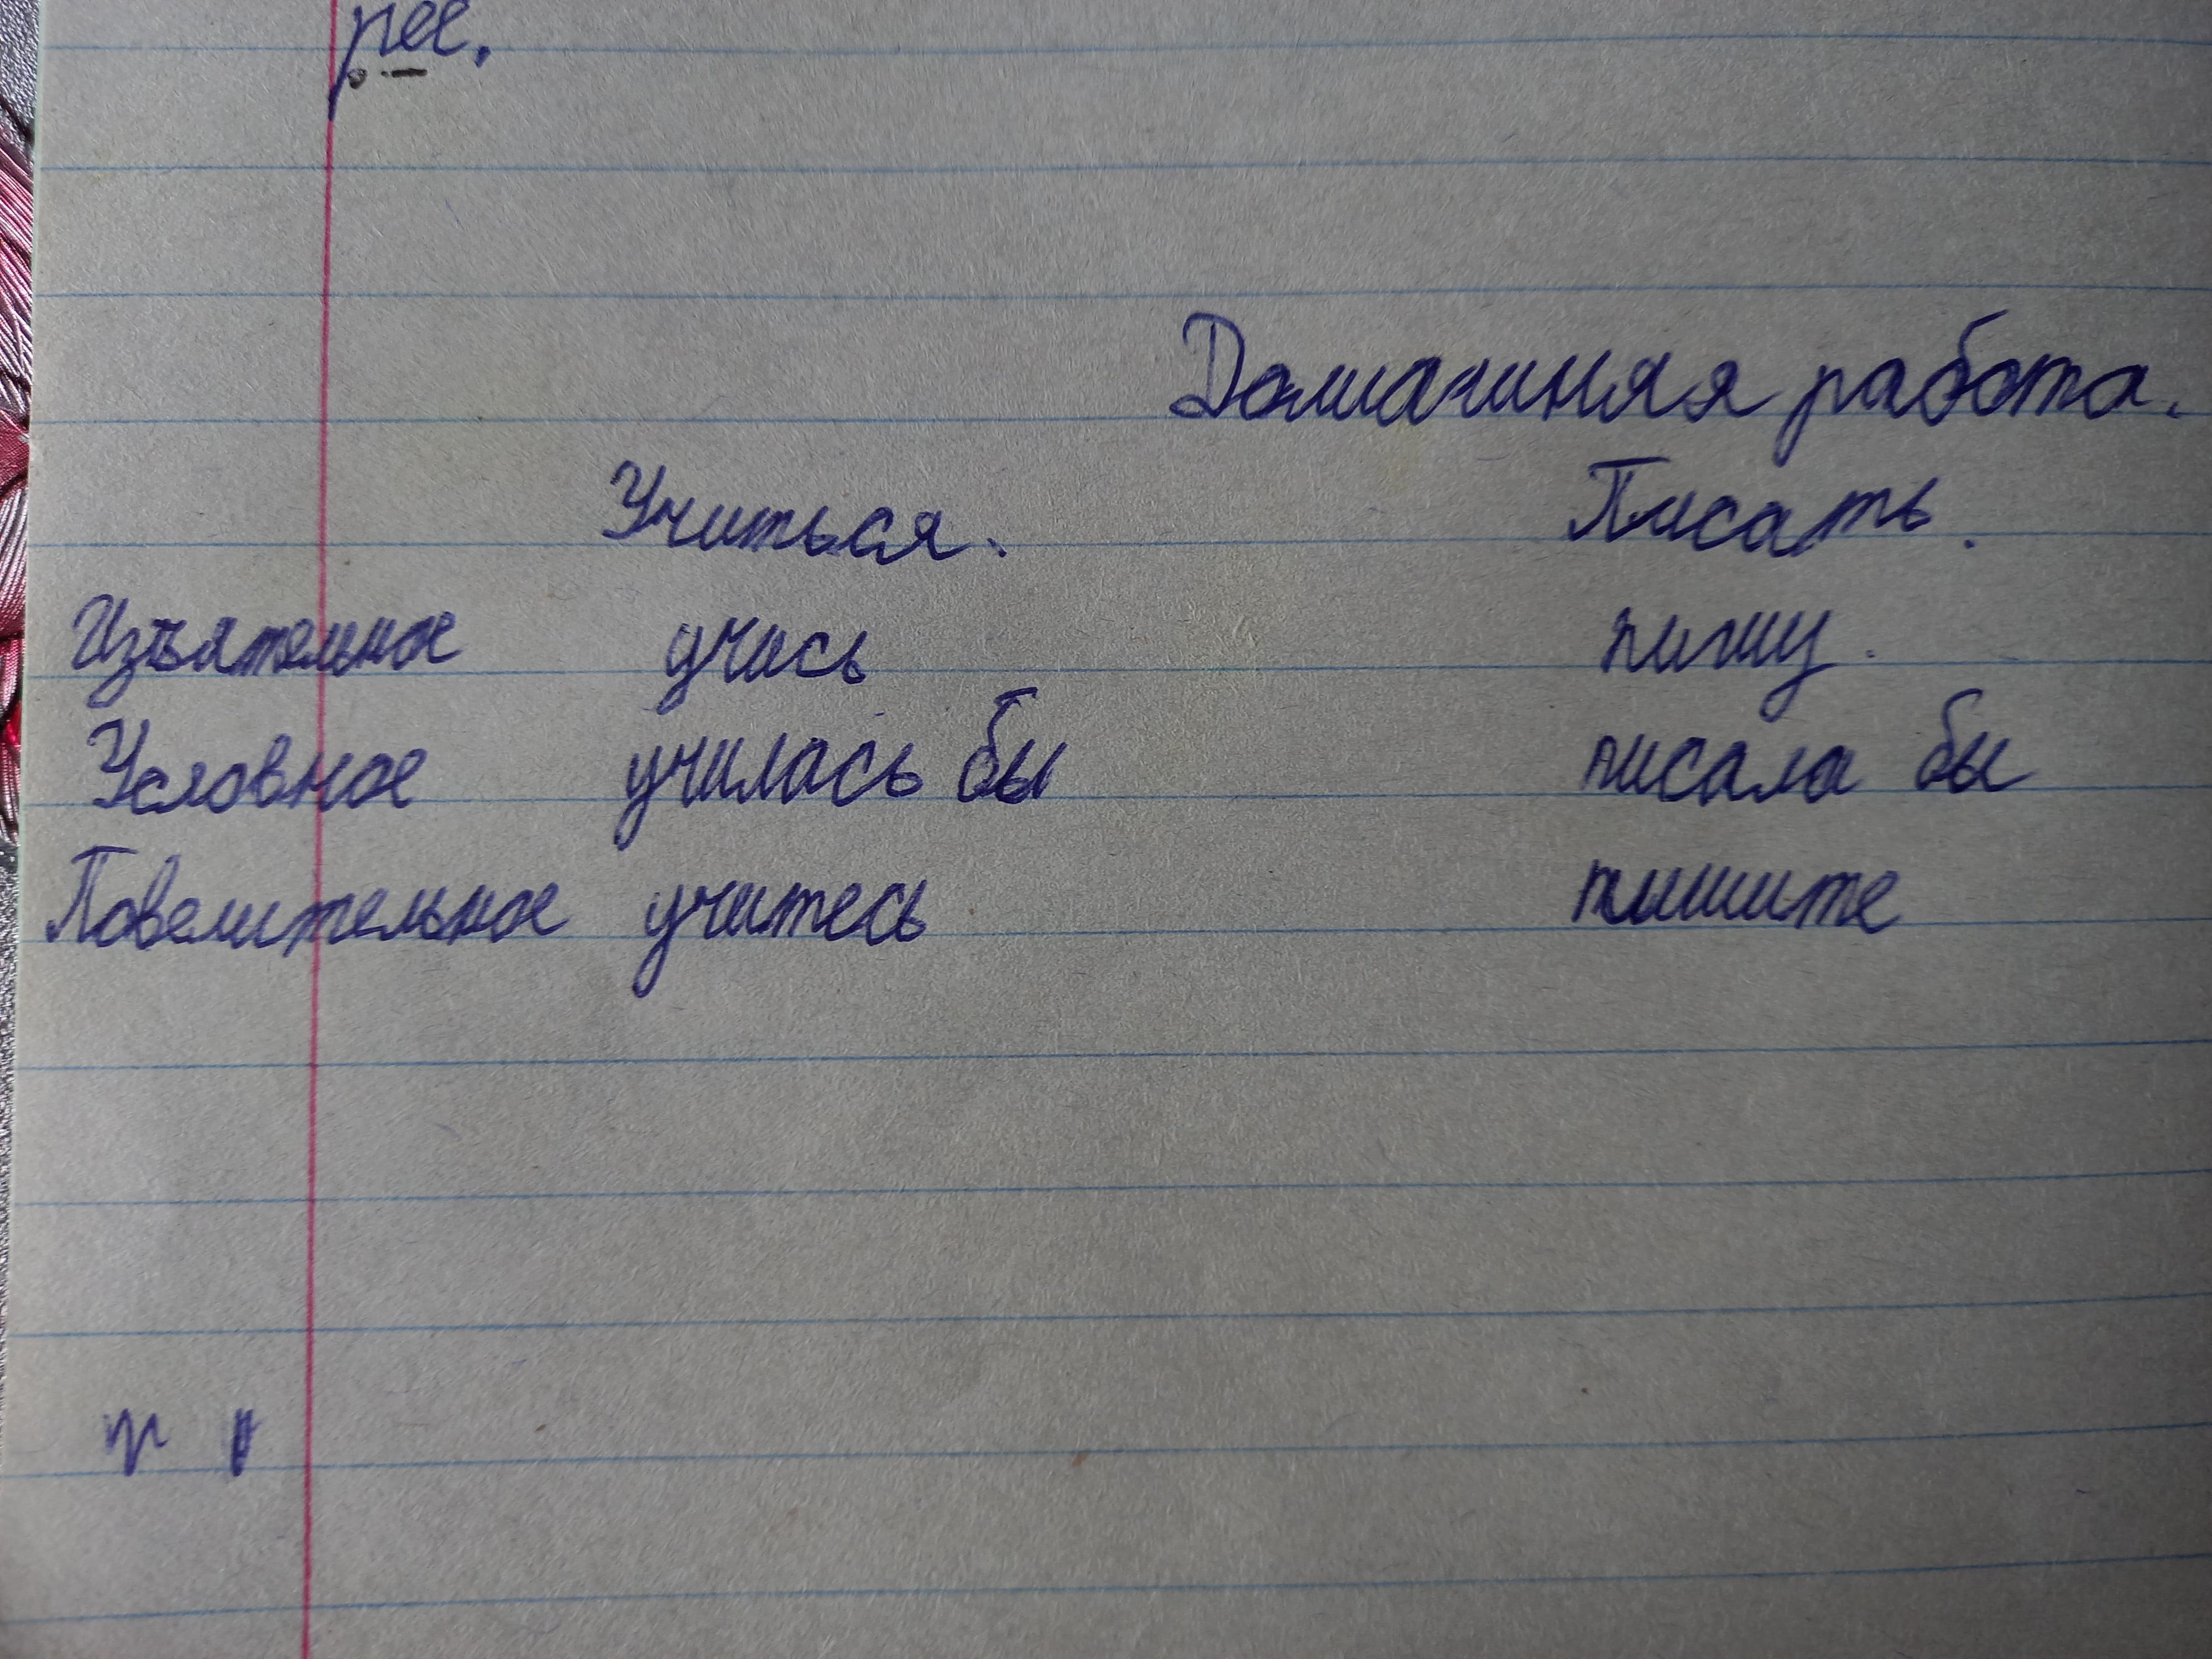 рее.
Домашняя работа.
Учиться. Писать.
Изъятельное учись пишу.
Условное училась бы писала бы
Повелительное учитесь пишите